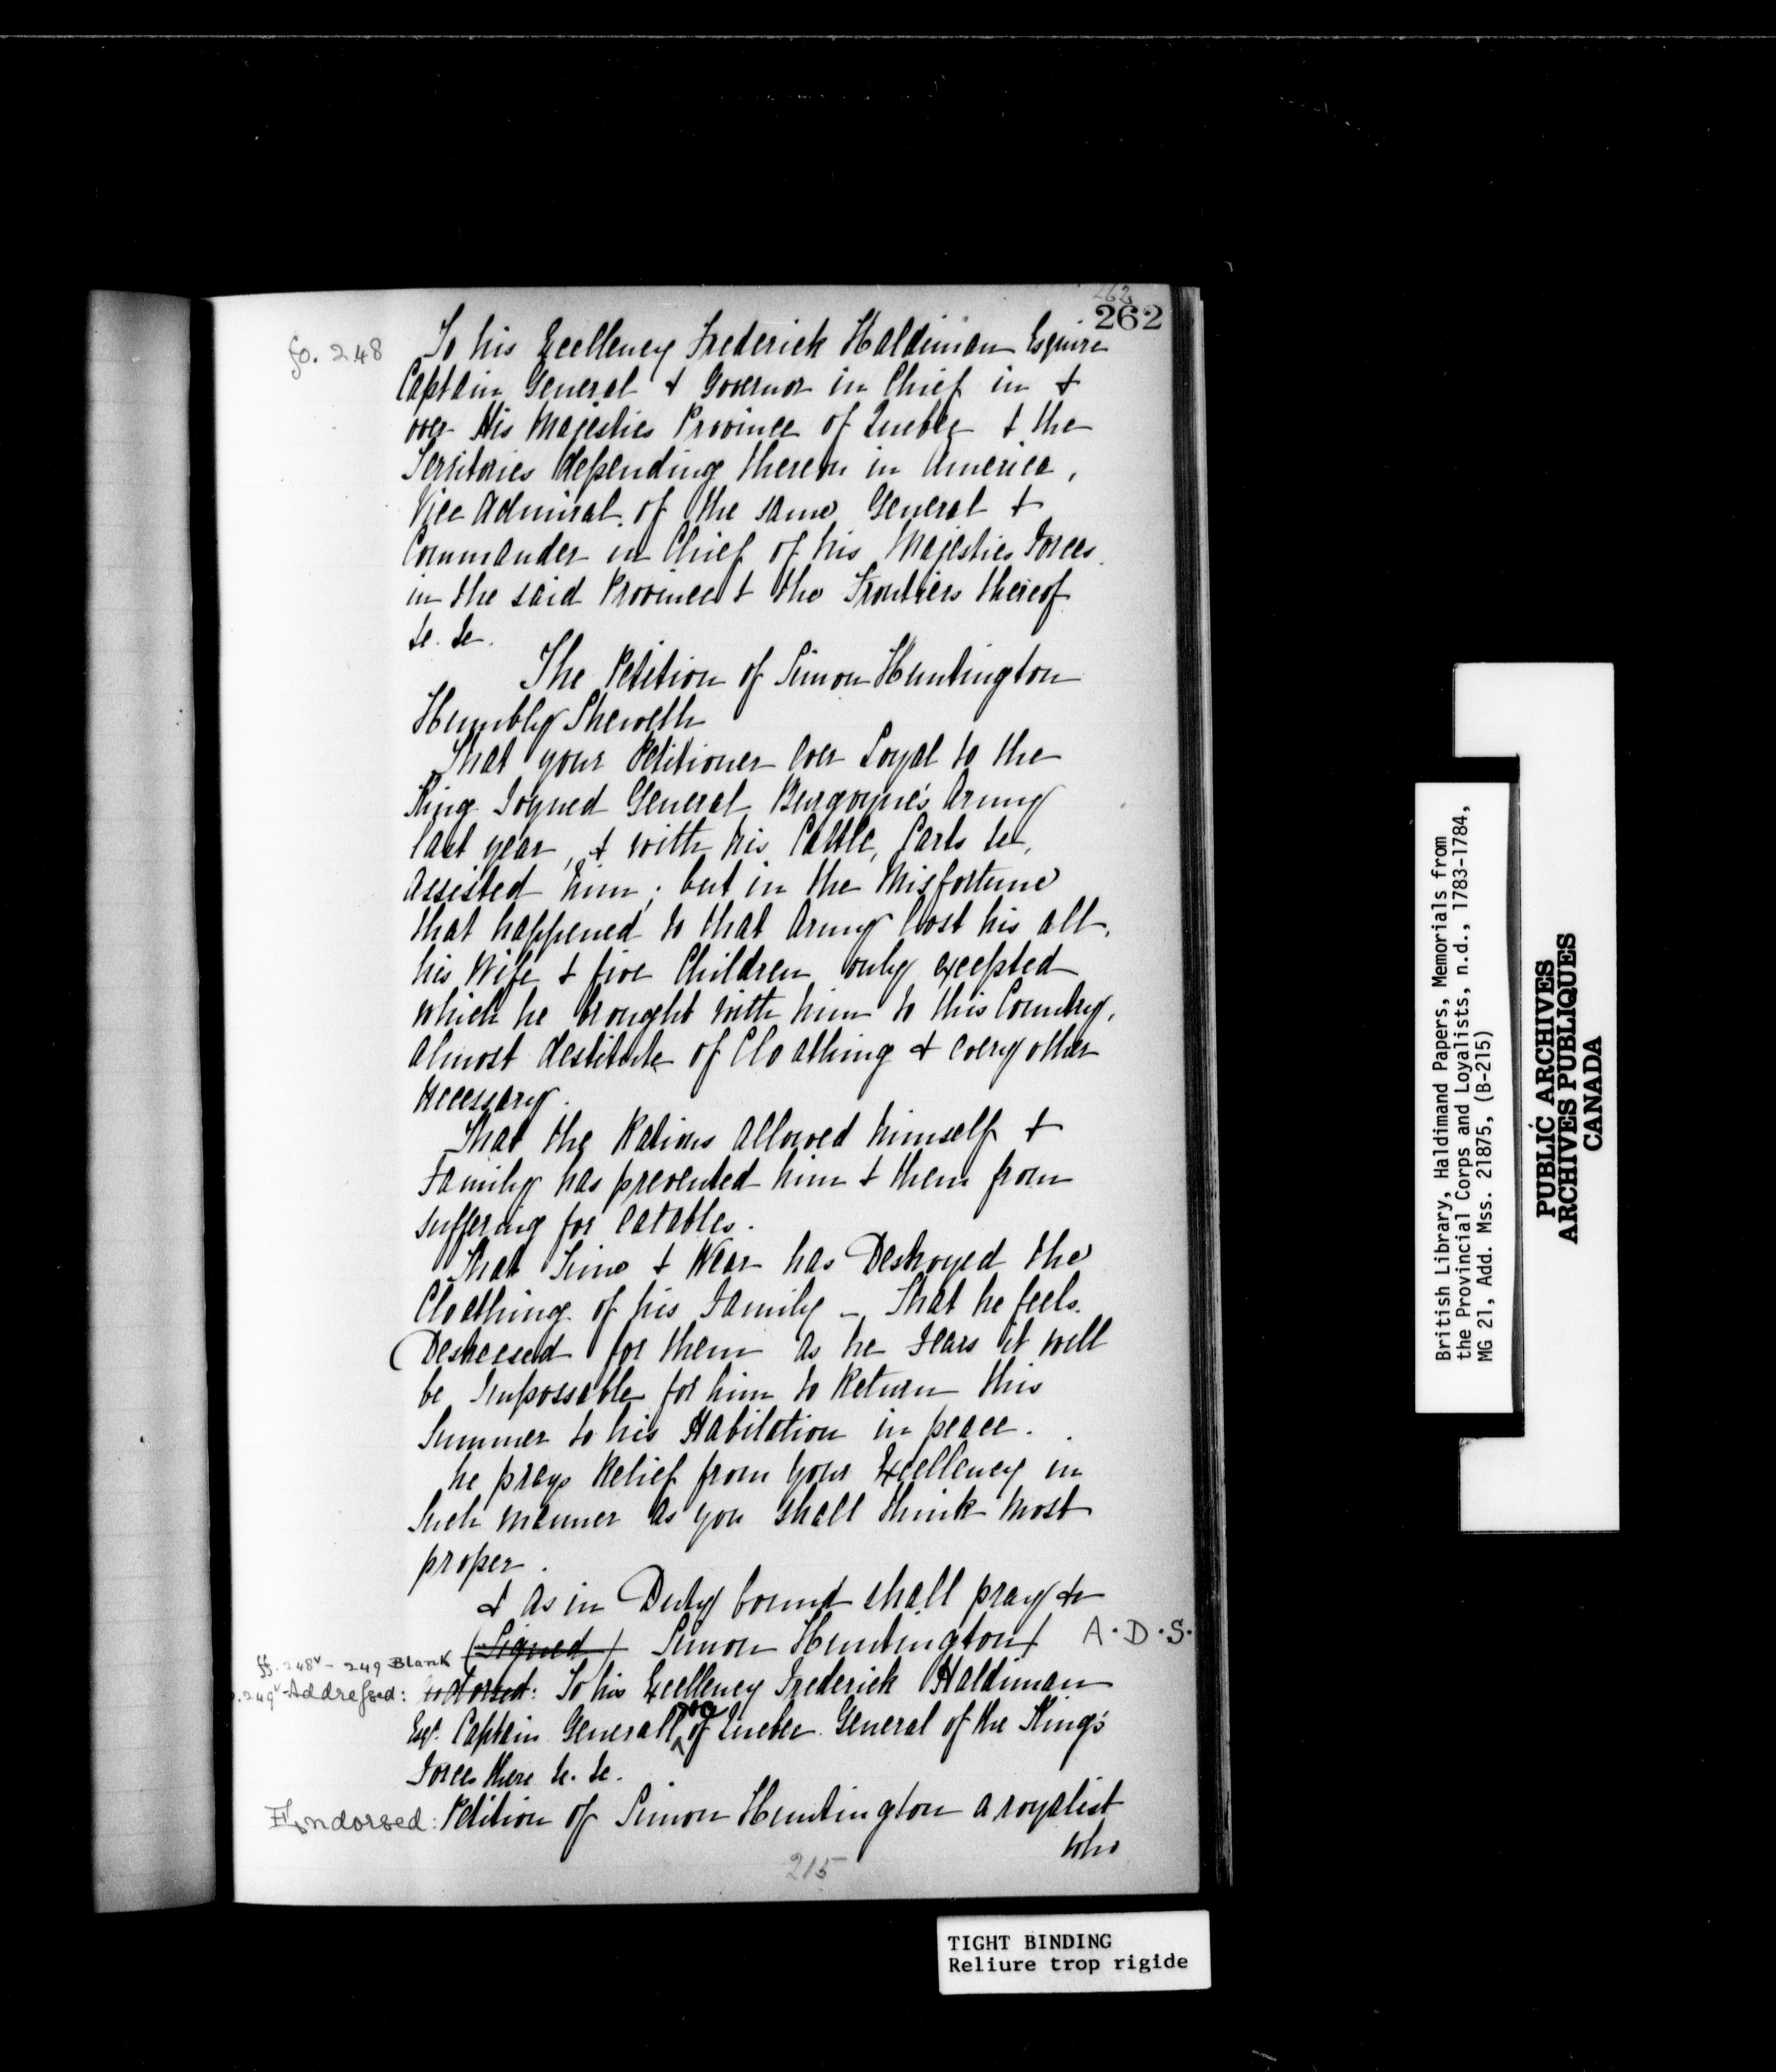 262
262
fo. 248
To his Excellency Frederick Haldiman Esquire
Captain General & Governor in Chief in &
over His Majesties Province of Quebec & the
Territories depending thereon in America,
Vice Admiral of the same General &
Commander in Chief of his Majesties Forces
in the said Province & the Frontiers thereof
&c. &c.
The Petition of Simon Huntington
Humbly Sheweth
That your Petitioner ever Loyal to the
King Joyned General Burgoyne's Army
last year, & with his Cattle, Carts &c,
assisted him; but in the Misfortune
that happened to that Army lost his all,
his Wife & five Children only excepted
which he brought with him to this Country,
almost destitute of Cloathing & every other
Necessary.
That the Rations allowed himself &
Family has prevented him & them from
suffering for eatables.
That Time & Wear has Destroyed the
Cloathing of his Family – That he feels
Destressed for them as he Fears it will
be Impossable for him to Return this
Summer to his Habitation in peace.
he prays Relief from your Excellency in
Such manner as you shall think most
proper.
& as in Duty bound shall pray &c
(Signed) Simon Huntington A.D.S.
ff. 248v – 249 Blank
249v Addressed: Endorsed: To his Excellency Frederick Haldiman
Esqr. Captain Generall of Quebec General of the King's
Forces there &c. &c.
Endorsed: Petition of Simon Huntington a royalist
who
215
TIGHT BINDING
Reliure trop rigide
British Library, Haldimand Papers, Memorials from
the Provincial Corps and Loyalists, n.d., 1783-1784,
MG 21, Add. Mss. 21875, (B-215)
PUBLIC ARCHIVES
ARCHIVES PUBLIQUES
CANADA